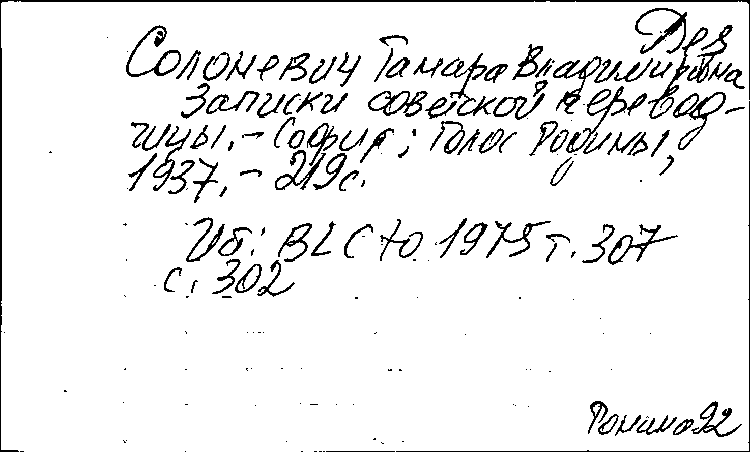 Дея
Солоневич Тамара Владимировна
Записки советской перевод-
чицы. - София; Голос Родины,
1937. - 219 с.
Иб: BLC to 1975 т. 307
с. 302